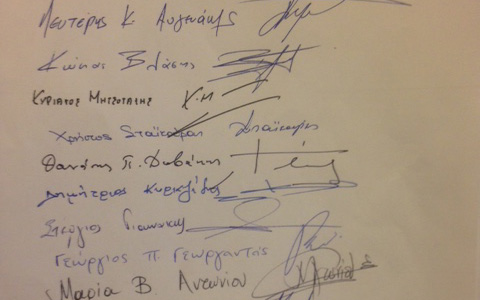 Λευτέρης Κ. Αυγενάκης
Κώστας Βλάσης
ΚΥΡΙΑΚΟΣ ΜΗΤΣΟΤΑΚΗΣ Κ.Μ
Χρήστος Σταϊκούρας Σταϊκούρας
Θανάσης Π. Δαβάκης
Δημήτριος Κυριαζίδης
Στέργιος Γιαννάκης
Γεώργιος Π. Γεωργαντάς
Μαρία Β. Αντωνίου